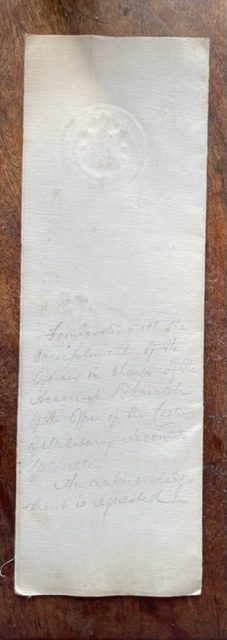 Forwarded with the
compliments of the
Officer in charge of the
Accounts Branch
of the Office of the Controller
of Military Accounts
An acknowledge-
ment is requested